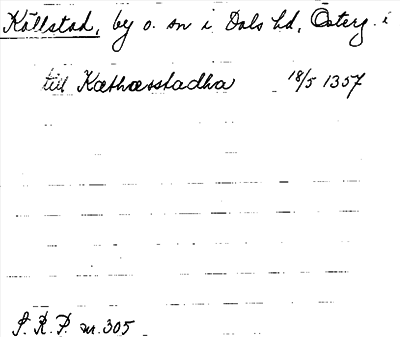 Källstad, by o. sn i Dals hd, Österg. i
till Kæthæsstadha 18/5 1357
P. R. P. nr. 305